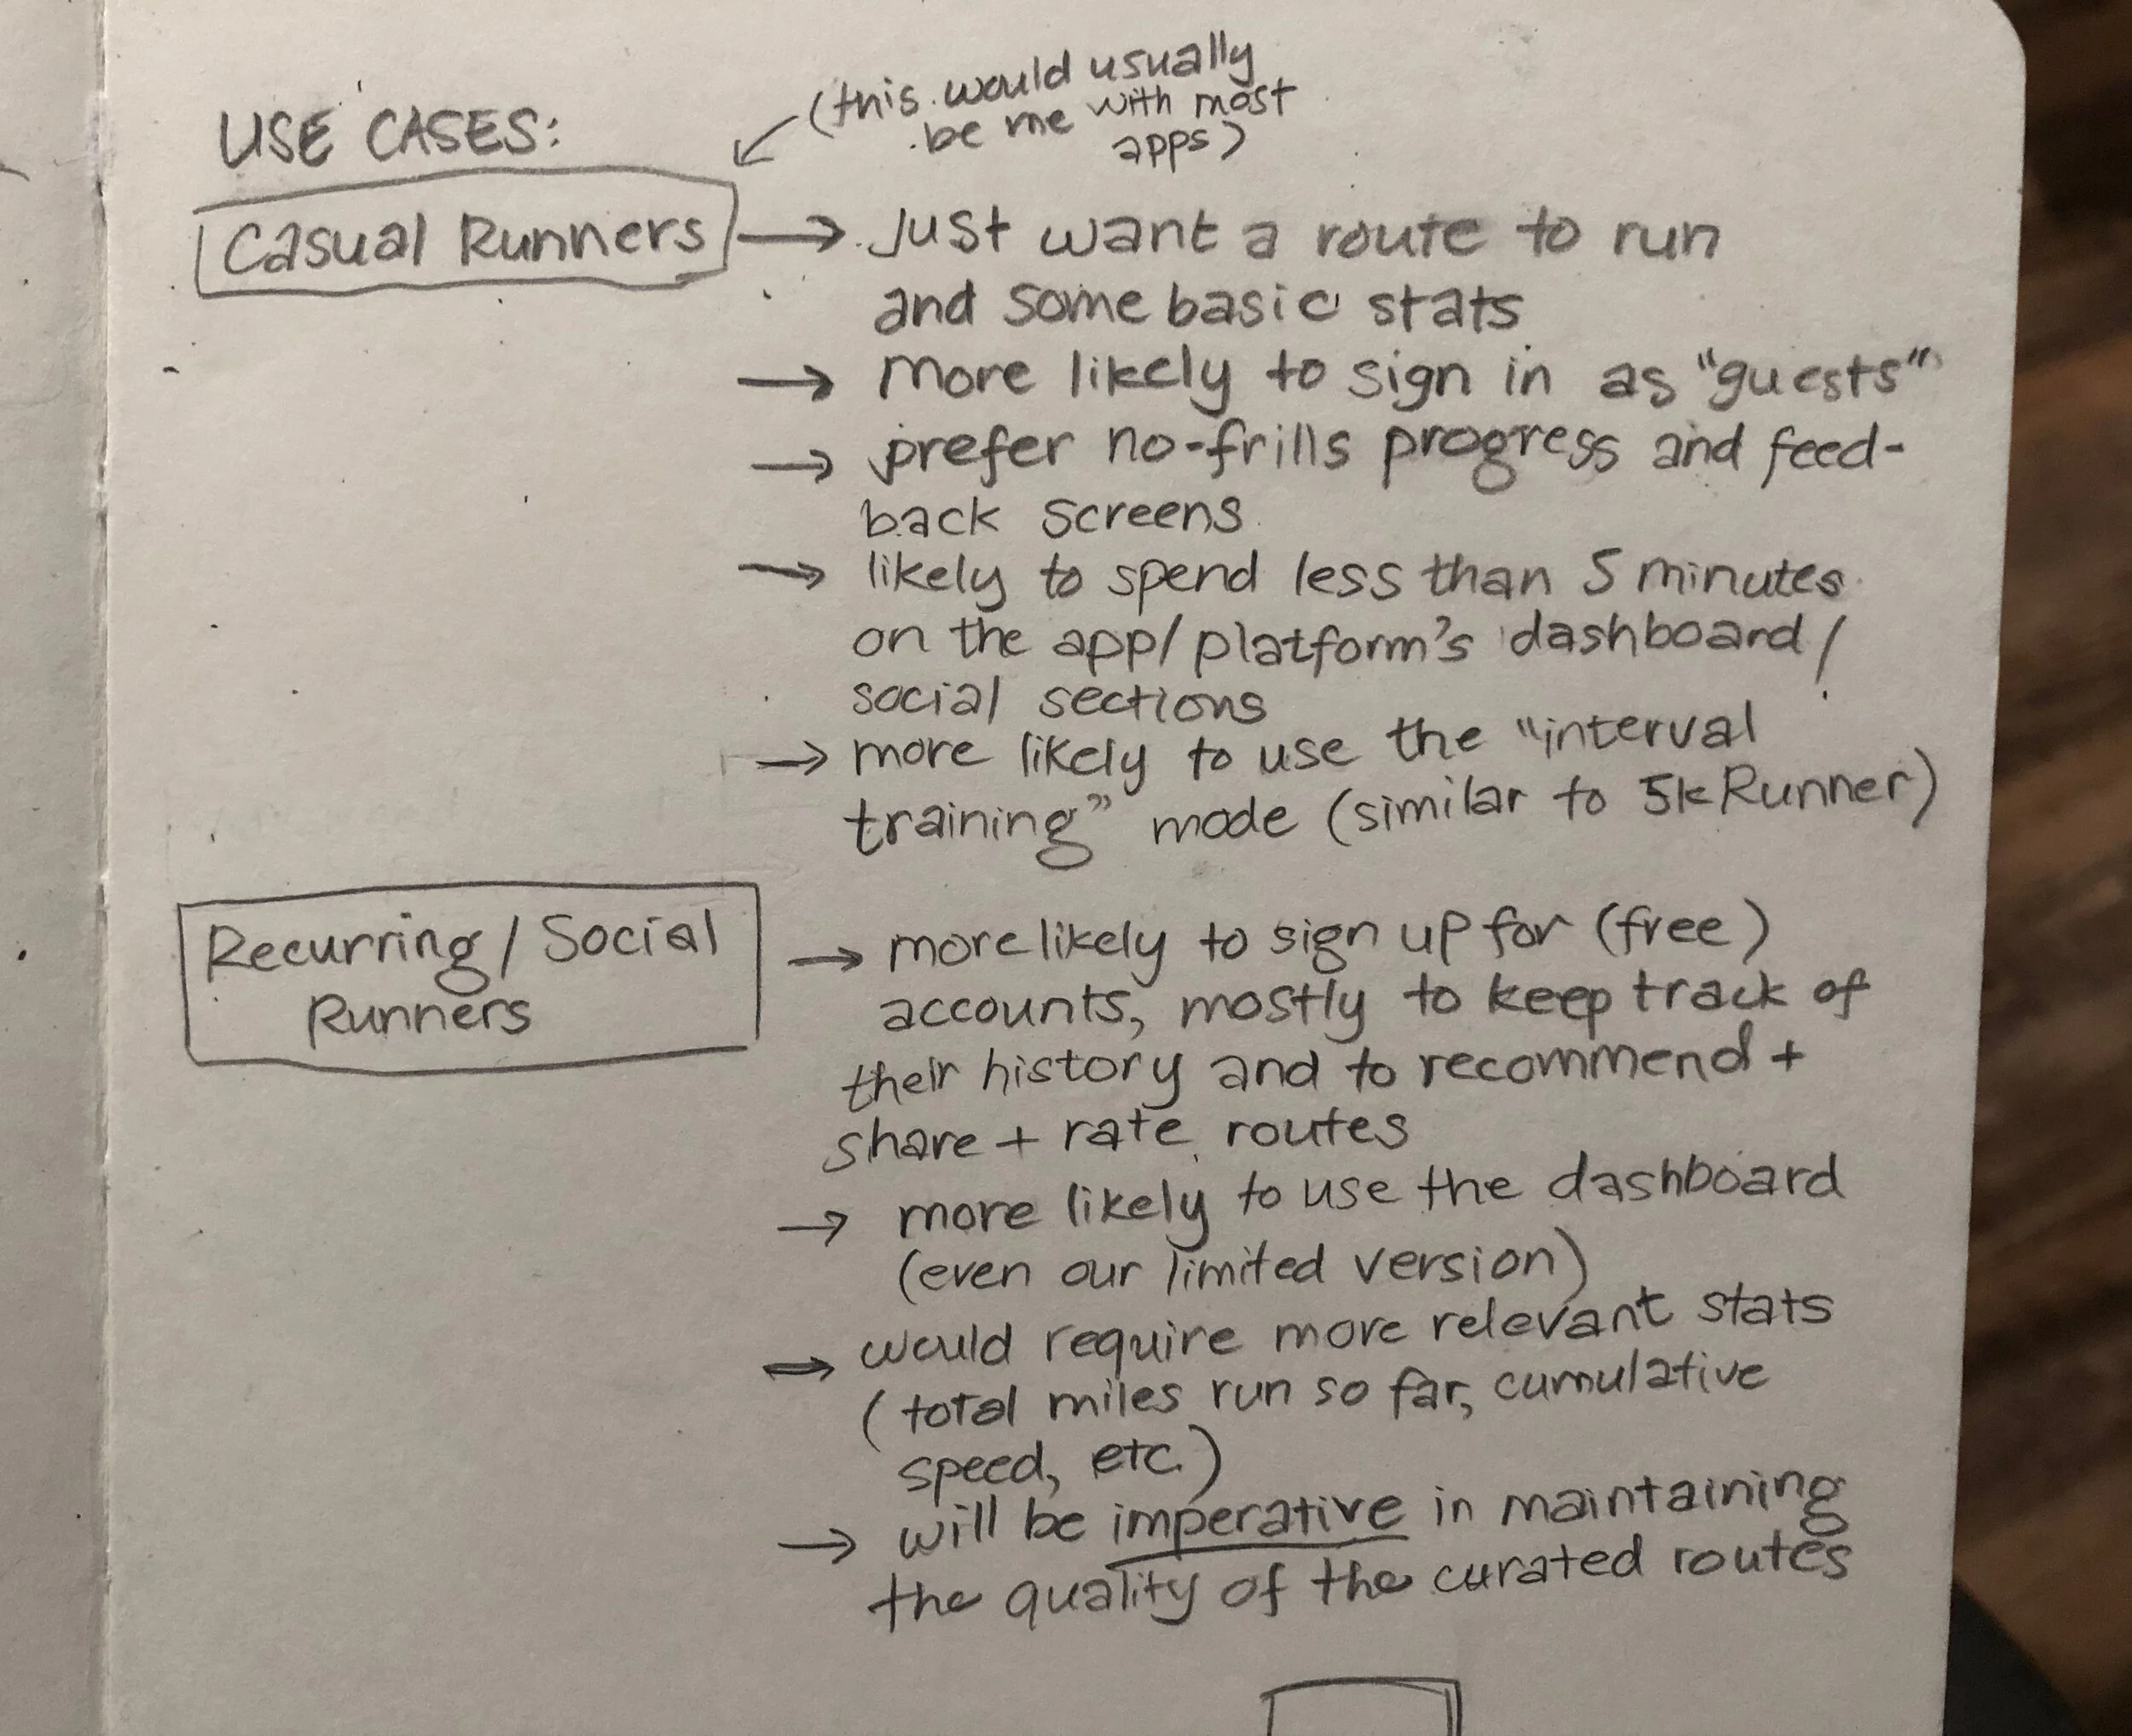 USE CASES:
(this would usually
be me with most
apps)
Casual Runners
→ Just want a route to run
and some basic stats
→ more likely to sign in as "guests"
→ prefer no-frills progress and feed-
back screens
→ likely to spend less than 5 minutes
on the app/platform's dashboard/
social sections
→ more likely to use the "interval
training" mode (similar to 5k Runner)
Recurring/Social
Runners
→ more likely to sign up for (free)
accounts, mostly to keep track of
their history and to recommend +
share + rate routes
→ more likely to use the dashboard
(even our limited version)
→ would require more relevant stats
(total miles run so far, cumulative
speed, etc.)
→ will be imperative in maintaining
the quality of the curated routes